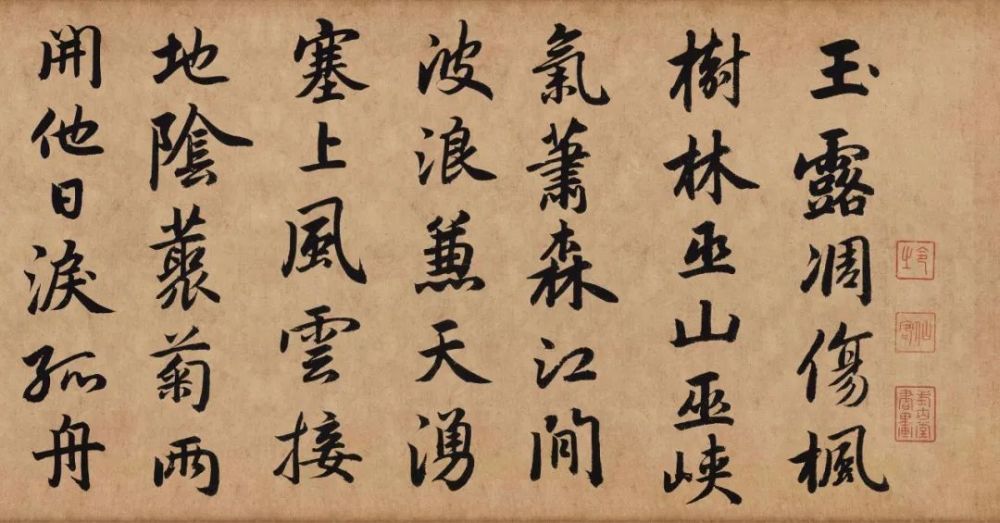 玉露凋傷楓
樹林巫山巫峽
氣蕭森江間
波浪兼天湧
塞上風雲接
地陰叢菊兩
開他日淚孤舟